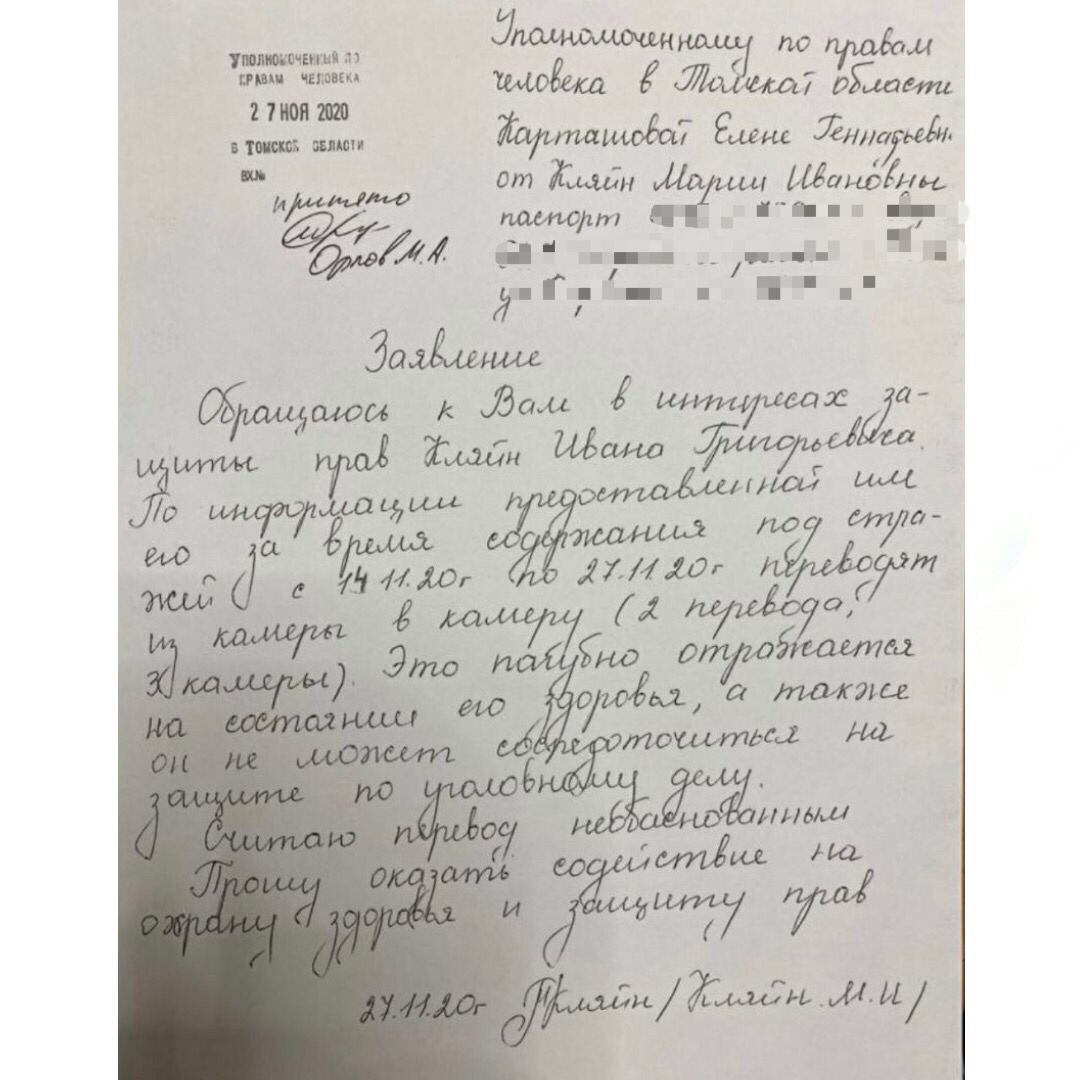 УПОЛНОМОЧЕННЫЙ ПО
ПРАВАМ ЧЕЛОВЕКА
27 НОЯ 2020
В ТОМСКОЙ ОБЛАСТИ
ВХ.№
принято
Орлов М.А.
Уполномоченному по правам
человека в Томской области
Карташовой Елене Геннадьевн
от Кляйн Марии Ивановны
паспорт
Заявление
Обращаюсь к Вам в интересах за-
щиты прав Кляйн Ивана Григорьевича.
По информации предоставленной им
его за время содержания под стра-
жей с 14.11.20г по 27.11.20г переводят
из камеры в камеру (2 перевода,
3 камеры). Это пагубно отражается
на состоянии его здоровья, а также
он не может сосредоточиться на
защите по уголовному делу.
Считаю перевод необоснованным
Прошу оказать содействие на
охрану здоровья и защиту прав
27.11.20г Кляйн /Кляйн М.И/